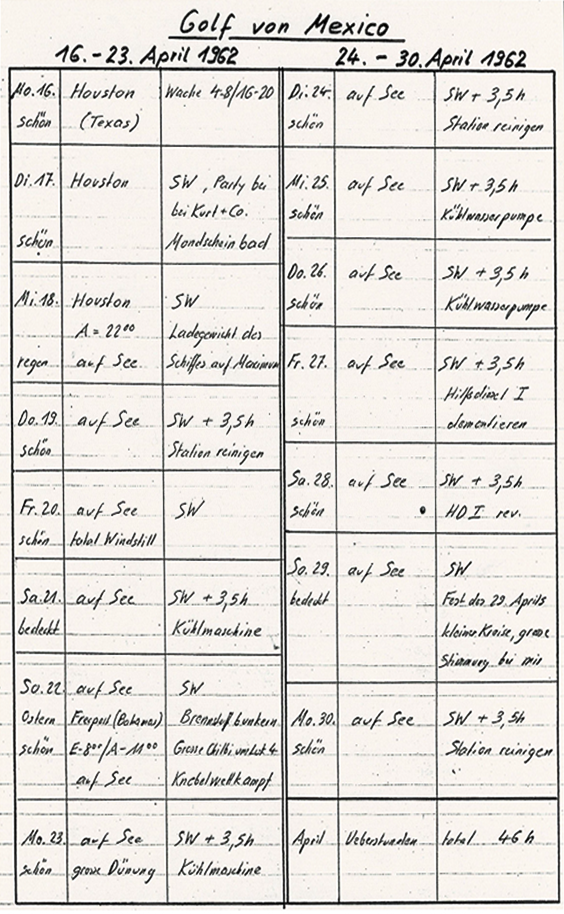 Golf von Mexico
16. - 23. April 1962
Mo. 16. Houston Wache 4-8/16-20
schön (Texas)
Di. 17. Houston SW, Party bei
bei Kurt + Co.
schön Mondschein bad
Mi. 18. Houston SW
A = 22⁰⁰ Ladegewicht des
regen auf See Schiffes auf Maximum
Do. 19. auf See SW + 3,5h
schön Station reinigen
Fr. 20. auf See SW
schön total Windstill
Sa. 21. auf See SW + 3,5h
bedeckt Kühlmaschine
So. 22. auf See SW
Ostern Freeport (Bahamas) Brennstoff bunkern
schön E-8⁰⁰/A-11⁰⁰ Grosse Chilbi um Luk 4
auf See Knebelwettkampf
Mo. 23. auf See SW + 3,5h
schön grosse Dünung Kühlmaschine
24. - 30. April 1962
Di. 24. auf See SW + 3,5h
schön Station reinigen
Mi. 25. auf See SW + 3,5h
schön Kühlwasserpumpe
Do. 26. auf See SW + 3,5h
schön Kühlwasserpumpe
Fr. 27. auf See SW + 3,5h
Hilfsdiesel I
schön demontieren
Sa. 28. auf See SW + 3,5h
schön HD I rev.
So. 29. auf See SW
bedeckt Fest des 29. Aprils
kleine Kreise, grosse
Stimmung bei mir
Mo. 30. auf See SW + 3,5h
schön Station reinigen
April Ueberstunden total 46 h